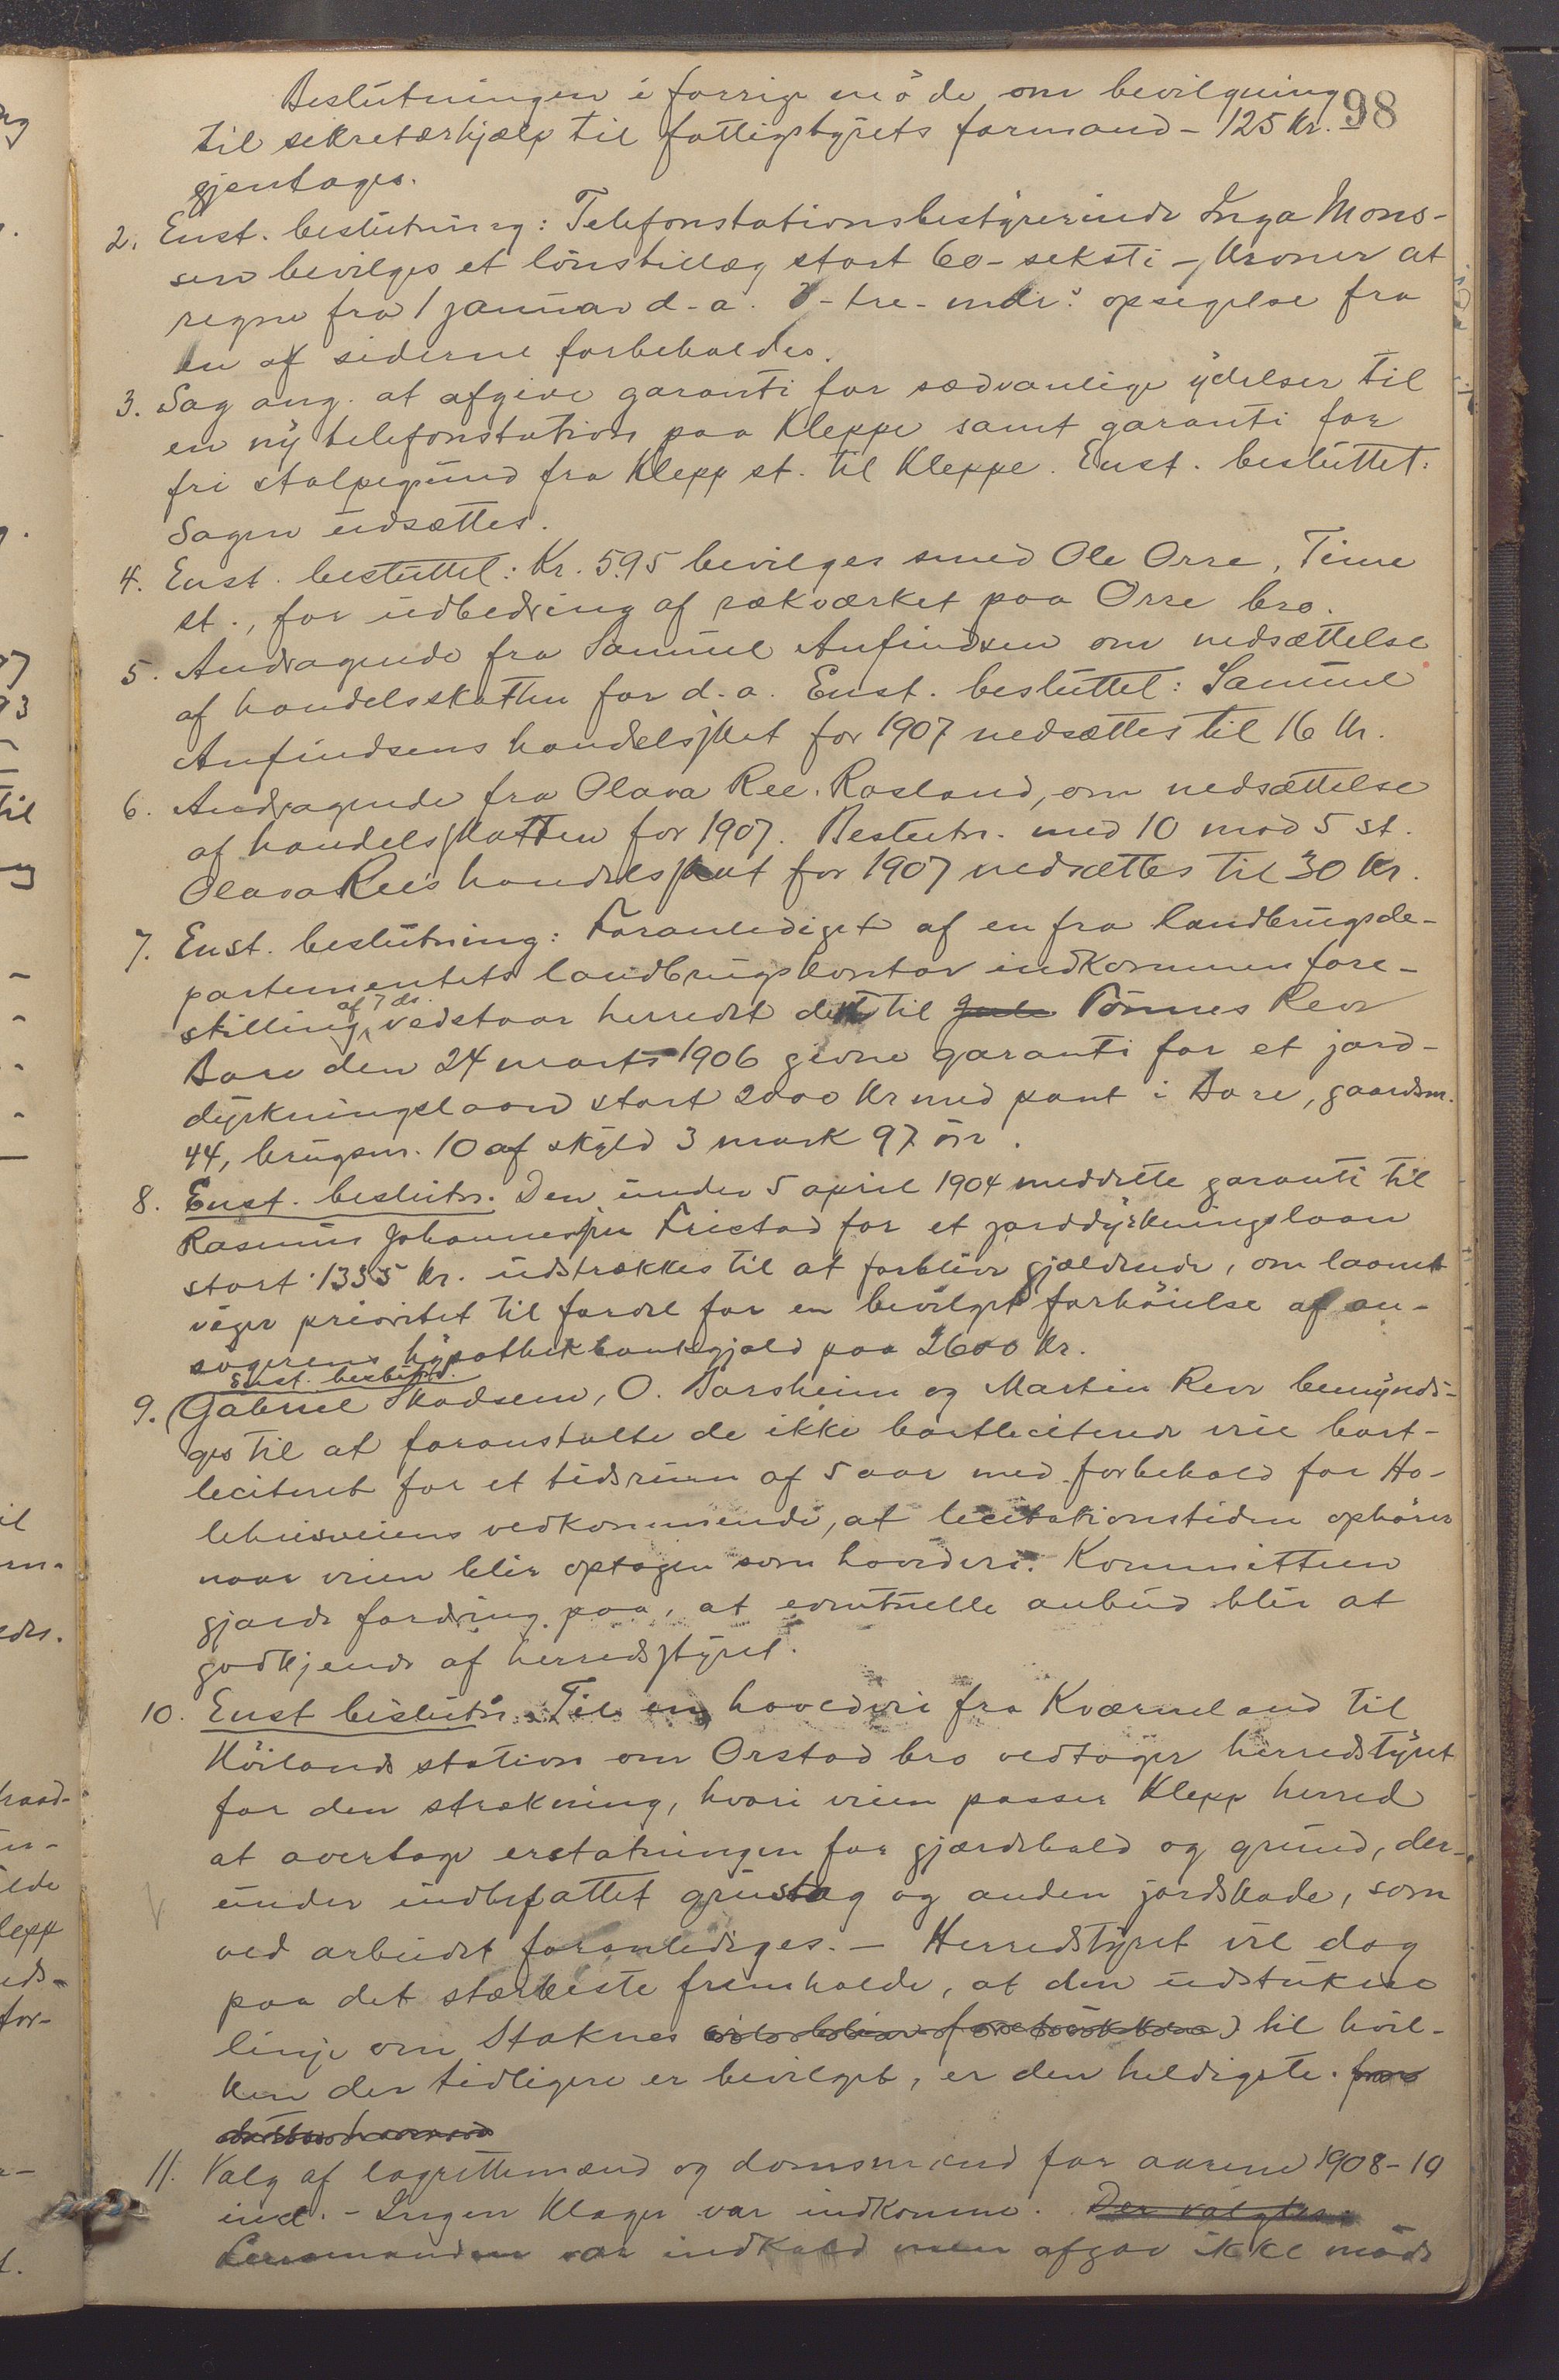 98
Beslutningen i forrige møde om bevilgning
til sekretærhjælp til fattigstyrets formand - 125 Kr.
gjentages.
2. Enst. beslutning: Telefonstationsbestyrerinde Inga Mons-
sen bevilges et lønstillæg stort 60 - seksti - Kroner at
regne fra 1 januar d. a. 3 - tre - mdrs opsigelse fra
en af siderne forbeholdes.
3. Sag ang. at afgive garanti for sædvanlige ydelser til
en ny telefonstation paa Kleppe samt garanti for
fri stolpegrund fra Klepp st. til Kleppe. Enst. besluttet:
Sagen udsættes.
4. Enst. besluttet: Kr. 5.95 bevilges smed Ole Orre, Time
st., for udbedring af rækværket paa Orre bro.
5. Andragende fra Samuel Anfindsen om nedsættelse
af handelsskatten for d. a. Enst. besluttet: Samuel
Anfindsens handelsskat for 1907 nedsættes til 16 Kr.
6. Andragende fra Olava Ree. Rosland, om nedsættelse
af handelsskatten for 1907. Beslutn. med 10 mod 5 st.
Olava Ree's handelsskat for 1907 nedsættes til 30 Kr.
7. Enst. beslutning: Foranlediget af en fra landbrugsde-
partementets landbrugskontor indkommen fore-
af 7 ds.
stilling vedstaar herredet det til Tønnes Reve
Bore den 24 marts 1906 givne garanti for et jord-
dyrkningslaan stort 2000 Kr med pant i Bore, gaardsn.
44, brugsnr. 10 af skyld 3 mark 97 øre.
8. Enst. beslutn. Den under 5 april 1904 meddelte garanti til
Rasmus Johannessen Fristad for et jorddyrkningslaan
stort 1335 Kr. udstrækkes til at forblive gjældende, om laanet
viger prioritet til fordel for en bevilget forhøielse af an-
søgerens hypothekbankgjæld paa 2600 Kr.
Enst. beslutn.
9. Gabriel Skadsem, O. Borsheim og Martin Reve bemyndi-
ges til at foranstalte de ikke bortliciterede veie bort-
liciteret for et tidsrum af 5 aar med forbehold for Ho-
lehusveiens vedkommende, at licitationstiden ophører
naar veien blir optagen som hovedvei. Kommitteen
gjorde fordring paa, at eventuelle anbud blir at
godkjende af herredsstyret.
10. Enst beslutn. Til en hovedvei fra Kværneland til
Høilands station om Orstad bro vedtager herredstyret
for den strækning, hvori veien passer Klepp herred
at overtage erstatningen for gjærdehold og grund, der-
under indbefattet grustag og anden jordskade, som
ved arbeidet foranlediges. - Herredstyret vil dog
paa det stærkeste fremholde, at den udstukne
linje om Staknes til hvil-
ken der tidligere er bevilget, er den heldigste.
11. Valg af lagrettemænd og domsmænd for aarene 1908-10
incl. - Ingen Klager var indkomne. Der valgtes:
Lensmanden var indkald men afgav ikke møde